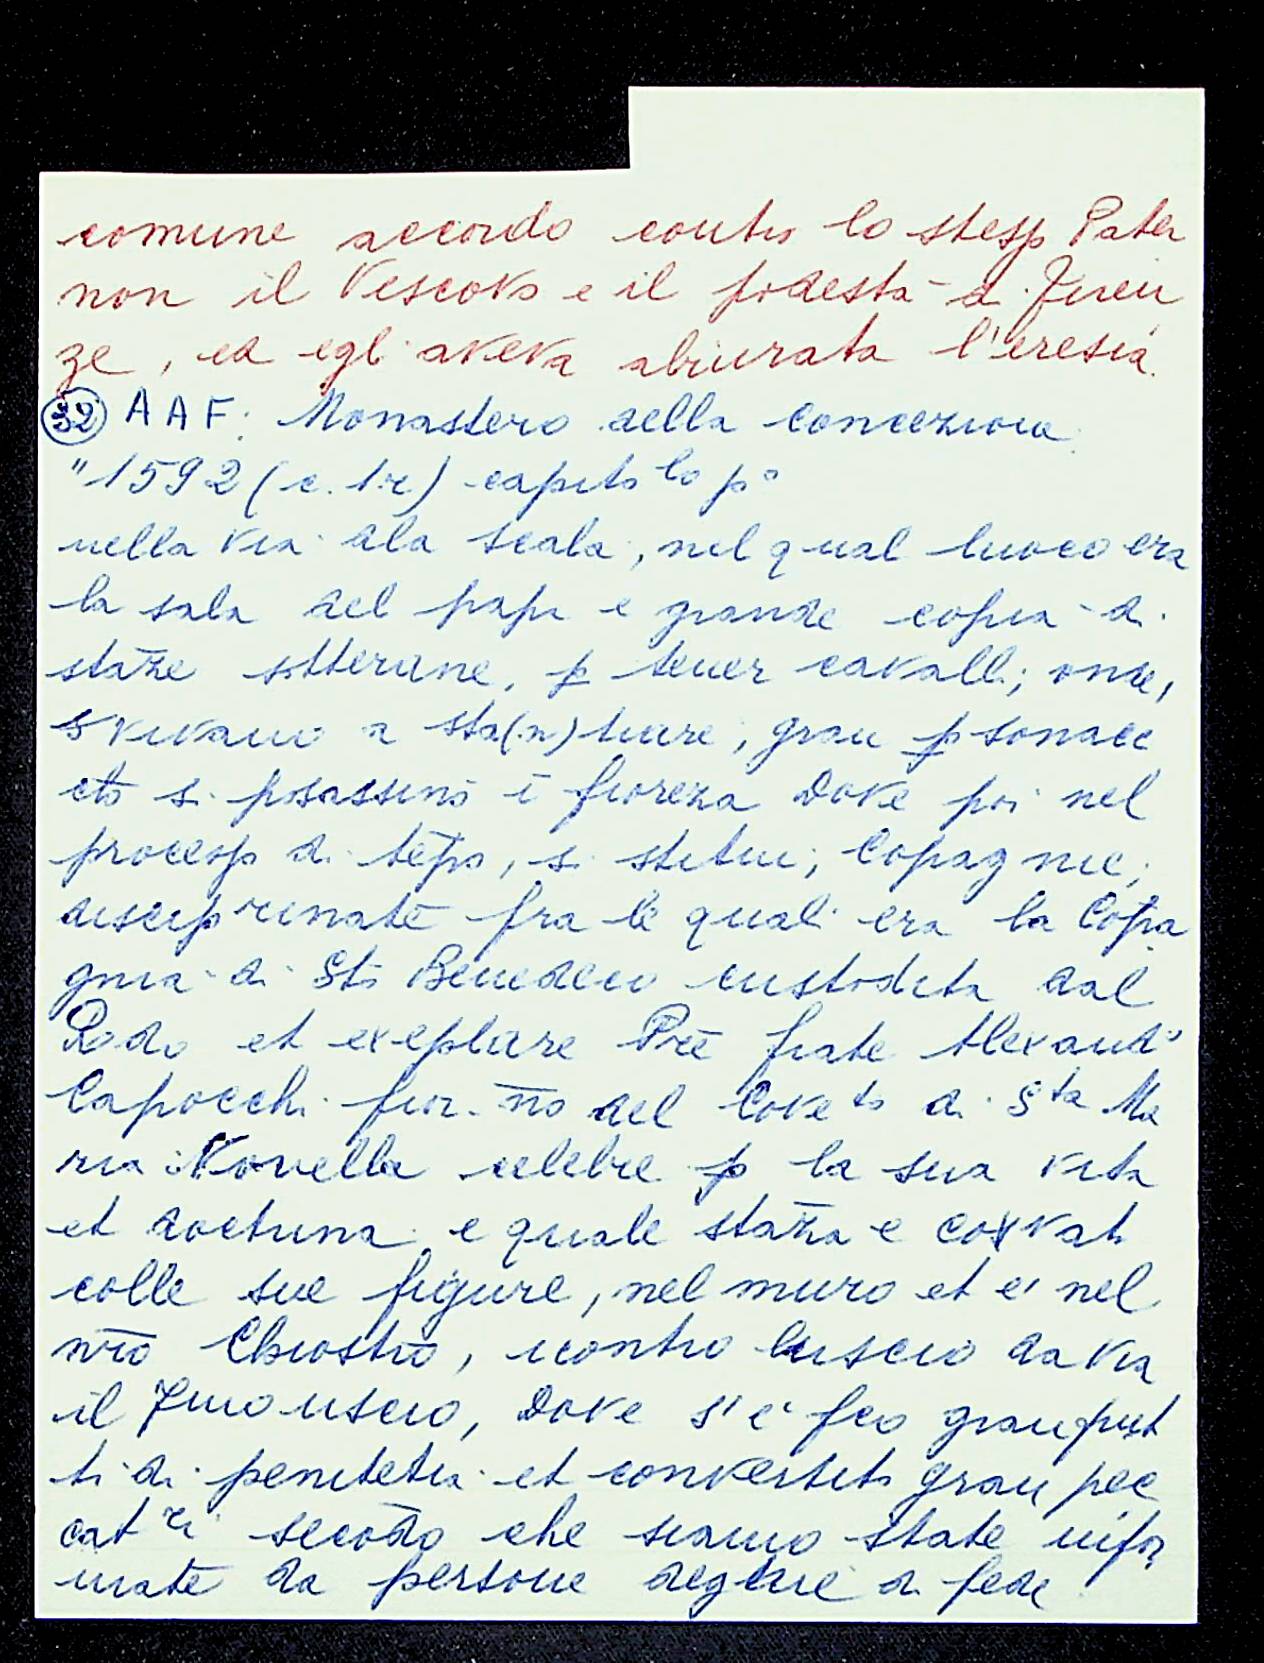 comune accordo contro lo stesso Pater
non il Vescovo e il podestà di Firen
ze, ed egli aveva abiurata l'eresia.
32 AAF: Monastero della Concezione
"1592 (c. 1r) capitolo po
nella via dla scala, nel qual luoco era
la sala del papa e grande copia di
staze sotterane, p tener cavalli; onde,
a sta(n)tiare, gran psonacc
si posassino ĩ fiorenza Dove poi nel
processo di tẽpo, si statui, Cõpagnie,
disciprinate fra le quali era la Cõpa
gnia di Sto Benedecto custodita dal
Rdo et exẽplare Pre frate Alexandro
Capocchi fior.no del Covẽto di Sta Ma
ria Novella celebre p la sua vita
et doctrina e quale stãza e
colle sue figure, nel muro et e' nel
nro Chiostro, icontro luscio da via
il primo uscio, Dove s'è fco gran
ti di penitẽtia et convertiti gran pec
catri secõdo che siamo state infor
mate da persone degne di fede